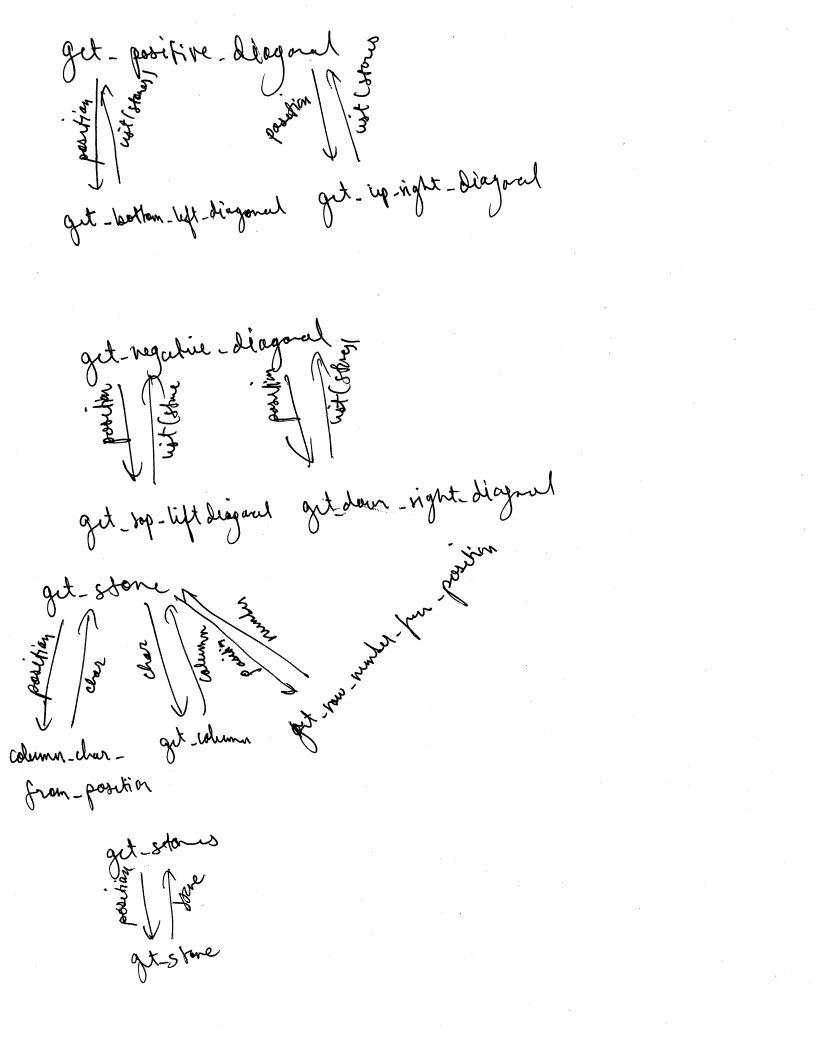 get_positive_diagonal
position
list(stones)
position
list(stones
get_bottom_left_diagonal
get_up_right_diagonal
get_negative_diagonal
position
list(stone
position
list(stones)
get_top_left diagonal
get_down_right_diagonal
get_stone
position
char
char
column
position
number
column_char_
from_position
get_column
get_row_number_from_position
get_stones
position
stone
get_stone